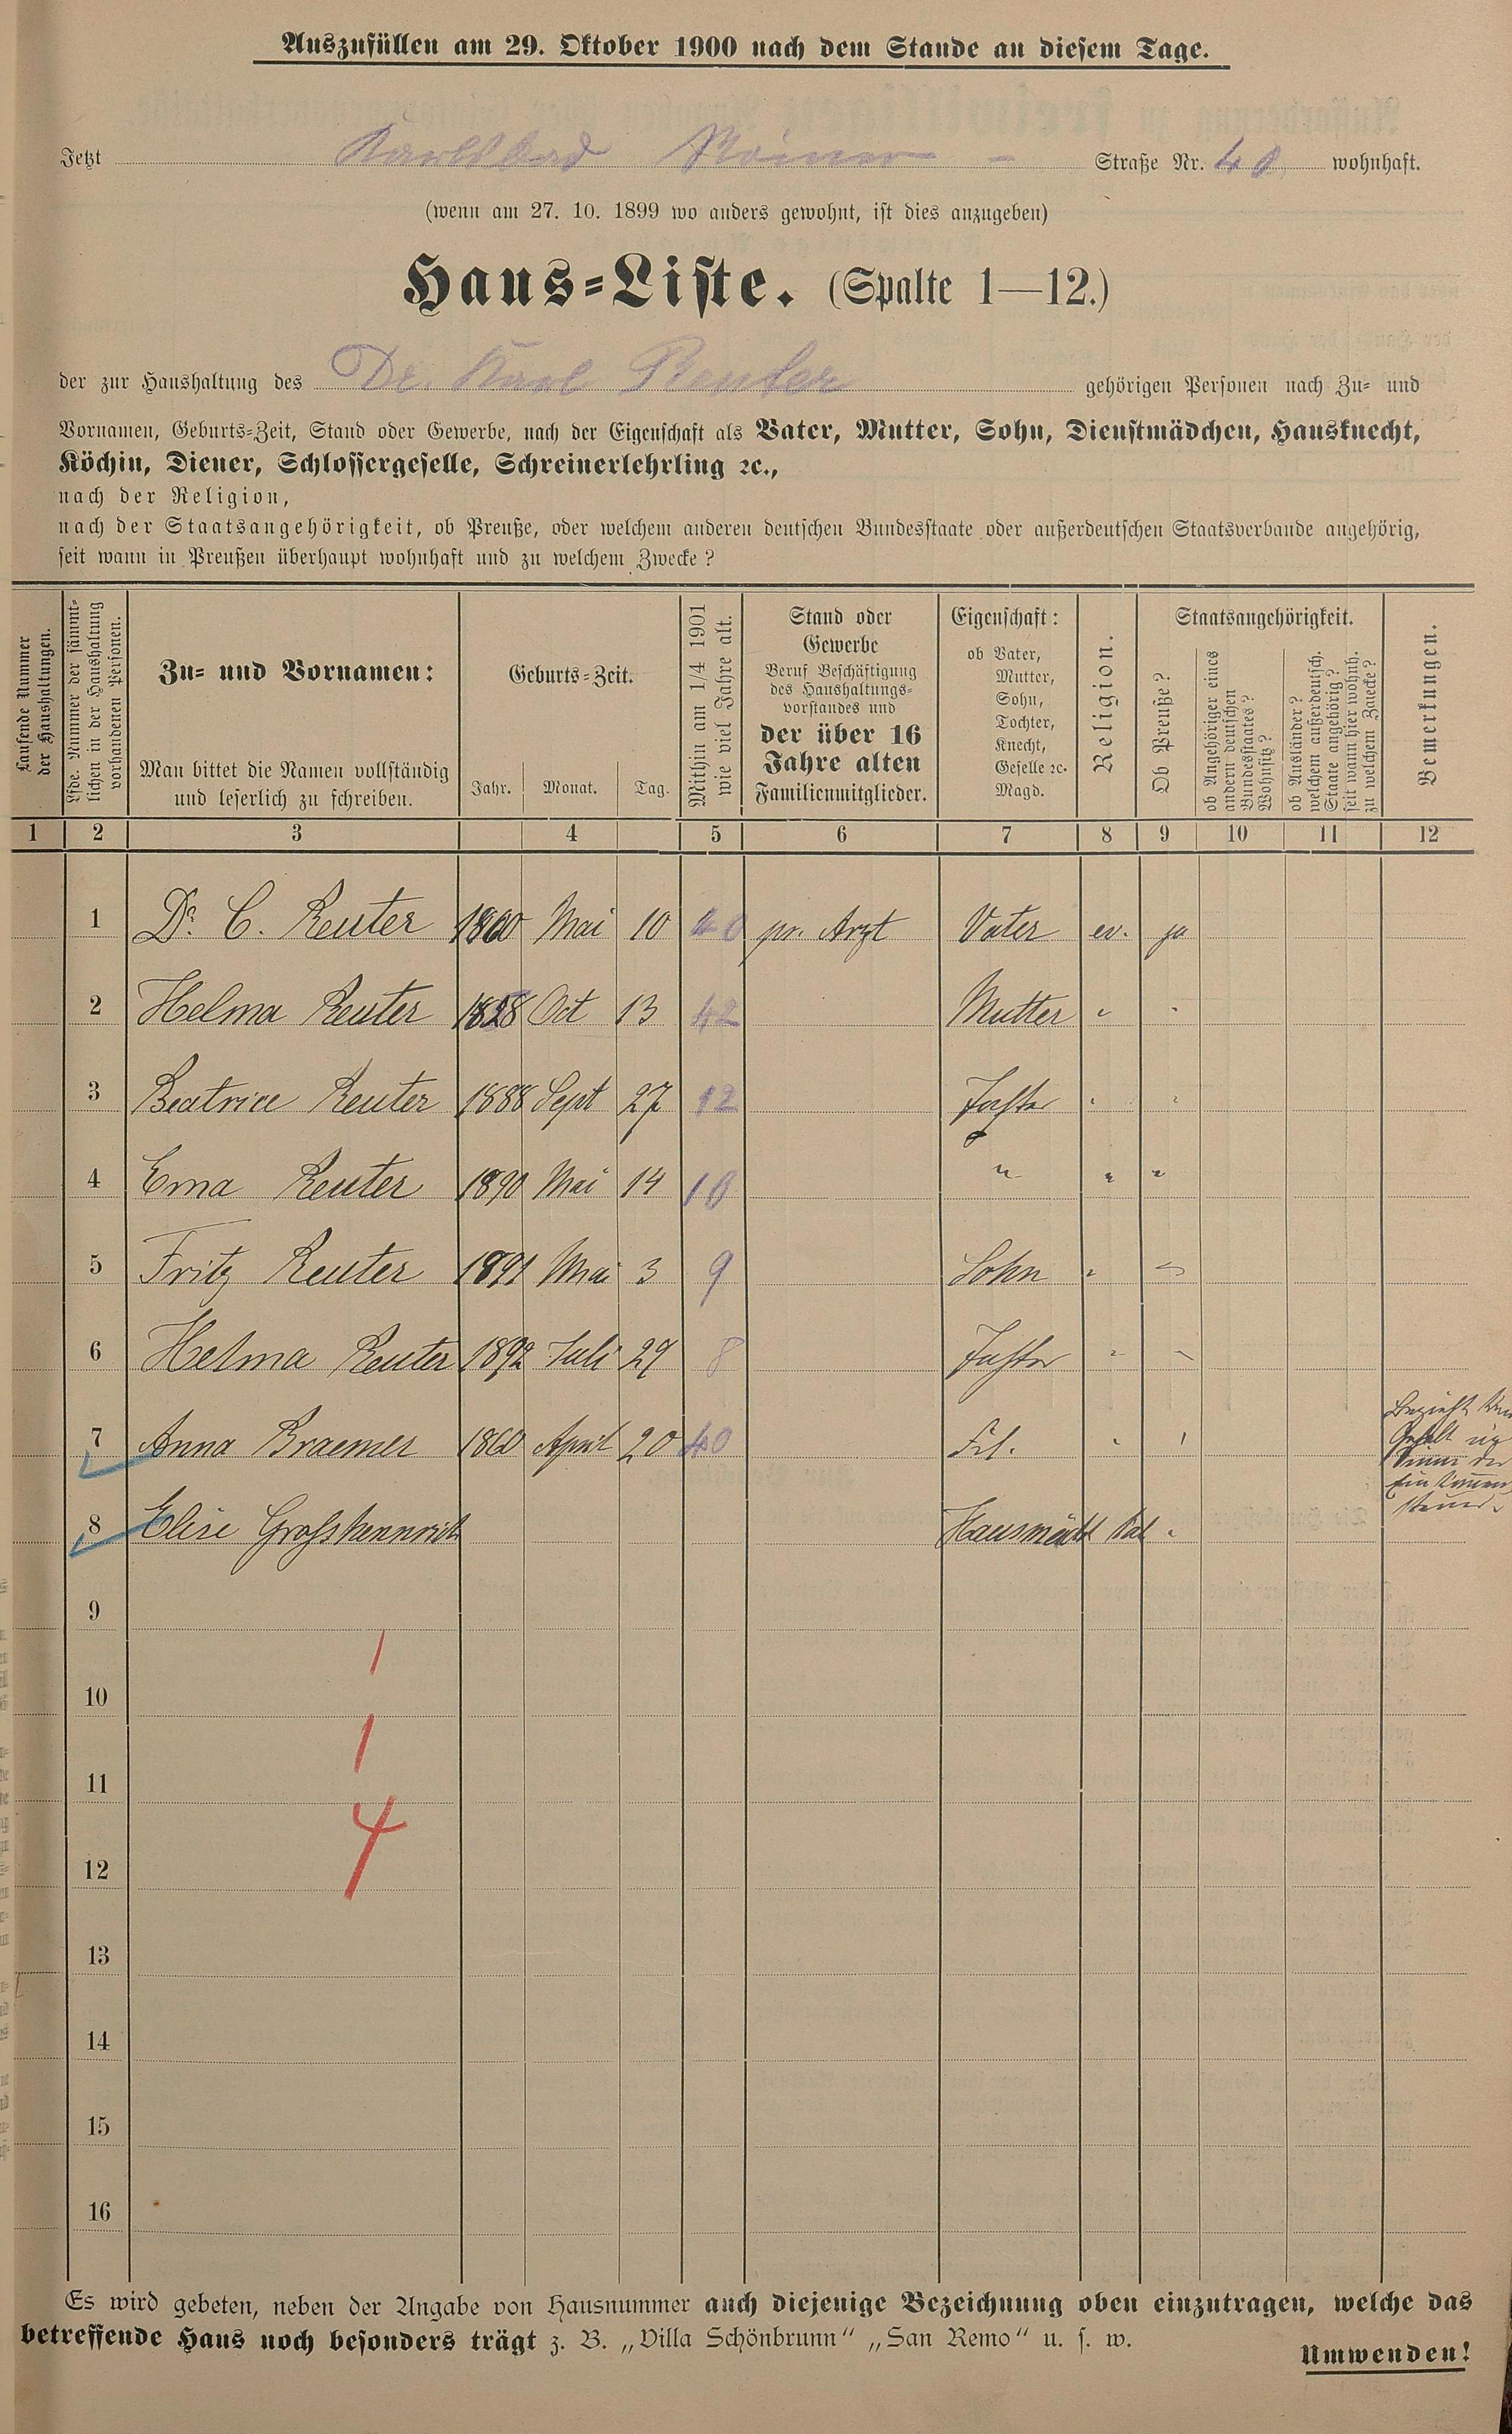 Auszufüllen am 29. Oktober 1900 nach dem Stande an diesem Tage.
Jetzt Karlsbad Römer - Straße Nr. 40 wohnhaft.
(wenn am 27. 10. 1899 wo anders gewohnt, ist dies anzugeben)
Haus-Liste. (Spalte 1—12.)
der zur Haushaltung des Dr. Karl Reuter gehörigen Personen nach Zu- und
Vornamen, Geburts-Zeit, Stand oder Gewerbe, nach der Eigenschaft als Vater, Mutter, Sohn, Dienstmädchen, Hausknecht,
Köchin, Diener, Schlossergeselle, Schreinerlehrling ꝛc.,
nach der Religion,
nach der Staatsangehörigkeit, ob Preuße, oder welchem anderen deutschen Bundesstaate oder außerdeutschen Staatsverbande angehörig,
seit wann in Preußen überhaupt wohnhaft und zu welchem Zwecke?
Laufende Nummer
der Haushaltungen.
Lfde. Nummer der sämmt-
lichen in der Haushaltung
vorhandenen Personen.
Zu- und Vornamen:
Man bittet die Namen vollständig
und leserlich zu schreiben.
Geburts-Zeit.
Jahr. Monat. Tag.
Mithin am 1/4 1901
wie viel Jahre alt.
Stand oder
Gewerbe
Beruf Beschäftigung
des Haushaltungs-
vorstandes und
der über 16
Jahre alten
Familienmitglieder.
Eigenschaft:
ob Vater,
Mutter,
Sohn,
Tochter,
Knecht,
Geselle ꝛc.
Magd.
Religion.
Staatsangehörigkeit.
Ob Preuße?
ob Angehöriger eines
andern deutschen
Bundesstaates?
Wohnsitz?
ob Ausländer?
welchem außerdeutsch.
Staate angehörig?
seit wann hier wohnh.
zu welchem Zwecke?
Bemerkungen.
1 2 3 4 5 6 7 8 9 10 11 12
1 Dr. C. Reuter 1860 Mai 10 40 pr. Arzt Vater ev. ja
2 Helma Reuter 1858 Oct 13 42 Mutter " "
3 Beatrice Reuter 1888 Sept 27 12 Tochter " "
4 Erna Reuter 1890 Mai 14 10 " " "
5 Fritz Reuter 1891 Mai 3 9 Sohn " "
6 Helma Reuter 1892 Juli 29 8 Tochter " "
7 Anna Braemer 1860 April 20 40 Frl. " "
Bezieht
Gehalt
Sinne der
Einkommen
steuer.
8 Elise Grosskennrich Kat "
9
1
10
1
11
4
12
13
14
15
16
Es wird gebeten, neben der Angabe von Hausnummer auch diejenige Bezeichnung oben einzutragen, welche das
betreffende Haus noch besonders trägt z. B. „Villa Schönbrunn" „San Remo" u. s. w.
Umwenden!